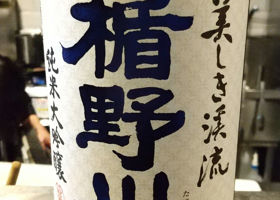 美しき渓流
楯野川
純米大吟醸
た